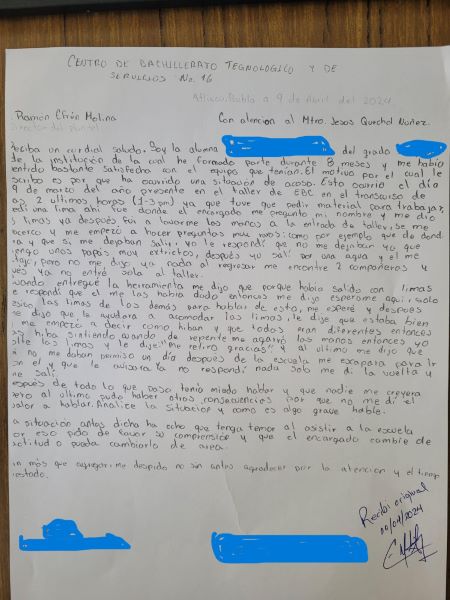 CENTRO DE BACHILLERATO TEGNOLOGICO Y DE
SERVICIOS No. 16
Atlixco, Puebla a 9 de Abril del 2024
Ramon Efrén Molina
Con atencion al Mtro. Jesús Quechol Nuñez.
Director del Plantel
eciba un cordial saludo. Soy la alumna del grado
de la institucion de la cual he formado parte durante 8 meses y me habia
entido bastante satisfecha con el equipo que tenian. El motivo por el cual le
scribo es por que ha ocurrido una situación de acoso. Esto ocurrio el día
9 de marzo del año presente en el taller de EBC en el transcurso de
as 2 ultimas horas (1-3 pm) ya que tuve que pedir material para trabajar,
edi una lima ahi fue donde el encargado me pregunto mi nombre y me dio
s limas ya después fui a lavarme las manos a la entrada de taller, se me
acerco y me empezó a hacer preguntas muy como por ejemplo que de dond
ra y que si me dejaban salir, yo le respondí que no me dejaban ya que
engo unos papás muy extrictos, después yo salí por una agua y el me
siguio, pero no me dijo ya nada al regresar me encontre 2 compañeros y
ues ya no entré sola al taller.
uando entregué la herramienta me dijo que porque habia salido con limas
e respondí que el me las había dado entonces me dijo esperame aqui, solo
esito las limas de los demás para hablar de esto, me esperé y después
e dijo que le ayudara a acomodar las limas, le dije que estaba bien
me empezó a decir como iban y que todas eran diferentes entonces
si hiba sintiendo cuando de repente me agarró las manos entonces yo
olte las limas y le dije "me retiro gracias" y al ultimo me dijo que
i no me daban permiso un día después de la escuela me escapara para ir
on el y que le avisara ya no respondí nada solo me di la vuelta y
me salí
espués de todo lo que paso tenía miedo hablar y que nadie me creyera
pero al ultimo pudo haber otras consecuencias por que no me di el
valor a hablar. Analice la situacion y como es algo grave hable.
a situacion antes dicha ha echo que tenga temor al asistir a la escuela
or eso pido de favor su comprension y que el encargado cambie de
actitud o pueda cambiarlo de area.
in más que agregar, me despido no sin antes agradecer por la atencion y el tiemp
restado.
Recibi original